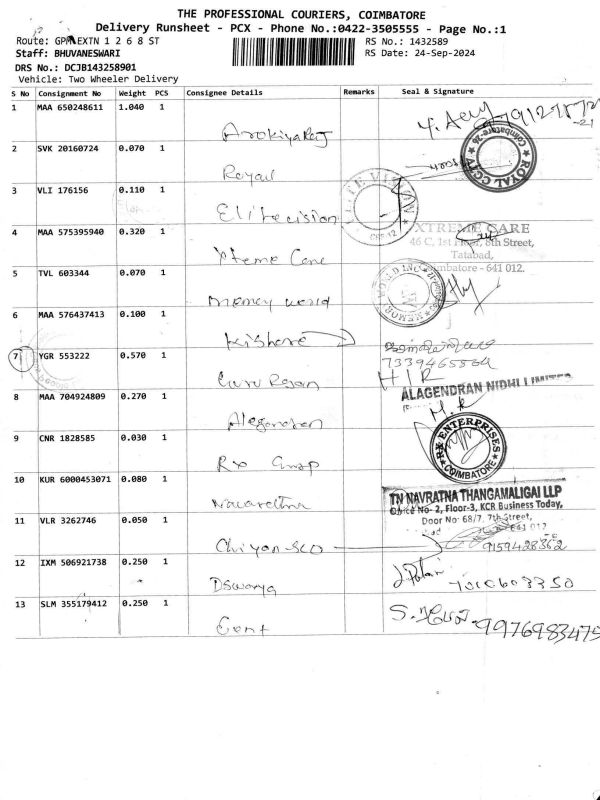 THE PROFESSIONAL COURIERS, COIMBATORE
Delivery Runsheet - PCX - Phone No.:0422-3505555 - Page No.:1
Route: GPM EXTN 1 2 6 8 ST
RS No.: 1432589
Staff: BHUVANESWARI
RS Date: 24-Sep-2024
DRS No.: DCJB143258901
Vehicle: Two Wheeler Delivery
S No Consignment No Weight PCS Consignee Details Remarks Seal & Signature
1 MAA 650248611 1.040 1 Arokiyaraj
2 SVK 20160724 0.070 1 Royal
ROYAL
3 VLI 176156 0.110 1 Elitecision
4 MAA 575395940 0.320 1 Xtreme Care
XTREME CARE
46 C, 1st Floor, 8th Street,
Tatabad,
Coimbatore - 641 012.
5 TVL 603344 0.070 1 money world
6 MAA 576437413 0.100 1 Kishore
7339465864
7 YGR 553222 0.570 1 Guru Rajan
HIR
8 MAA 704924809 0.270 1 Alagendran
ALAGENDRAN NIDHI LIMITED
M.R
9 CNR 1828585 0.030 1 Rx
RX ENTERPRISES
COIMBATORE
10 KUR 6000453071 0.080 1 Navarathna
TN NAVRATNA THANGAMALIGAI LLP
Office No- 2, Floor-3, KCR Business Today,
Door No: 68/7, 7th Street,
641 012
11 VLR 3262746 0.050 1
9159428362
12 IXM 506921738 0.250 1
7010603350
13 SLM 355179412 0.250 1
9976983475